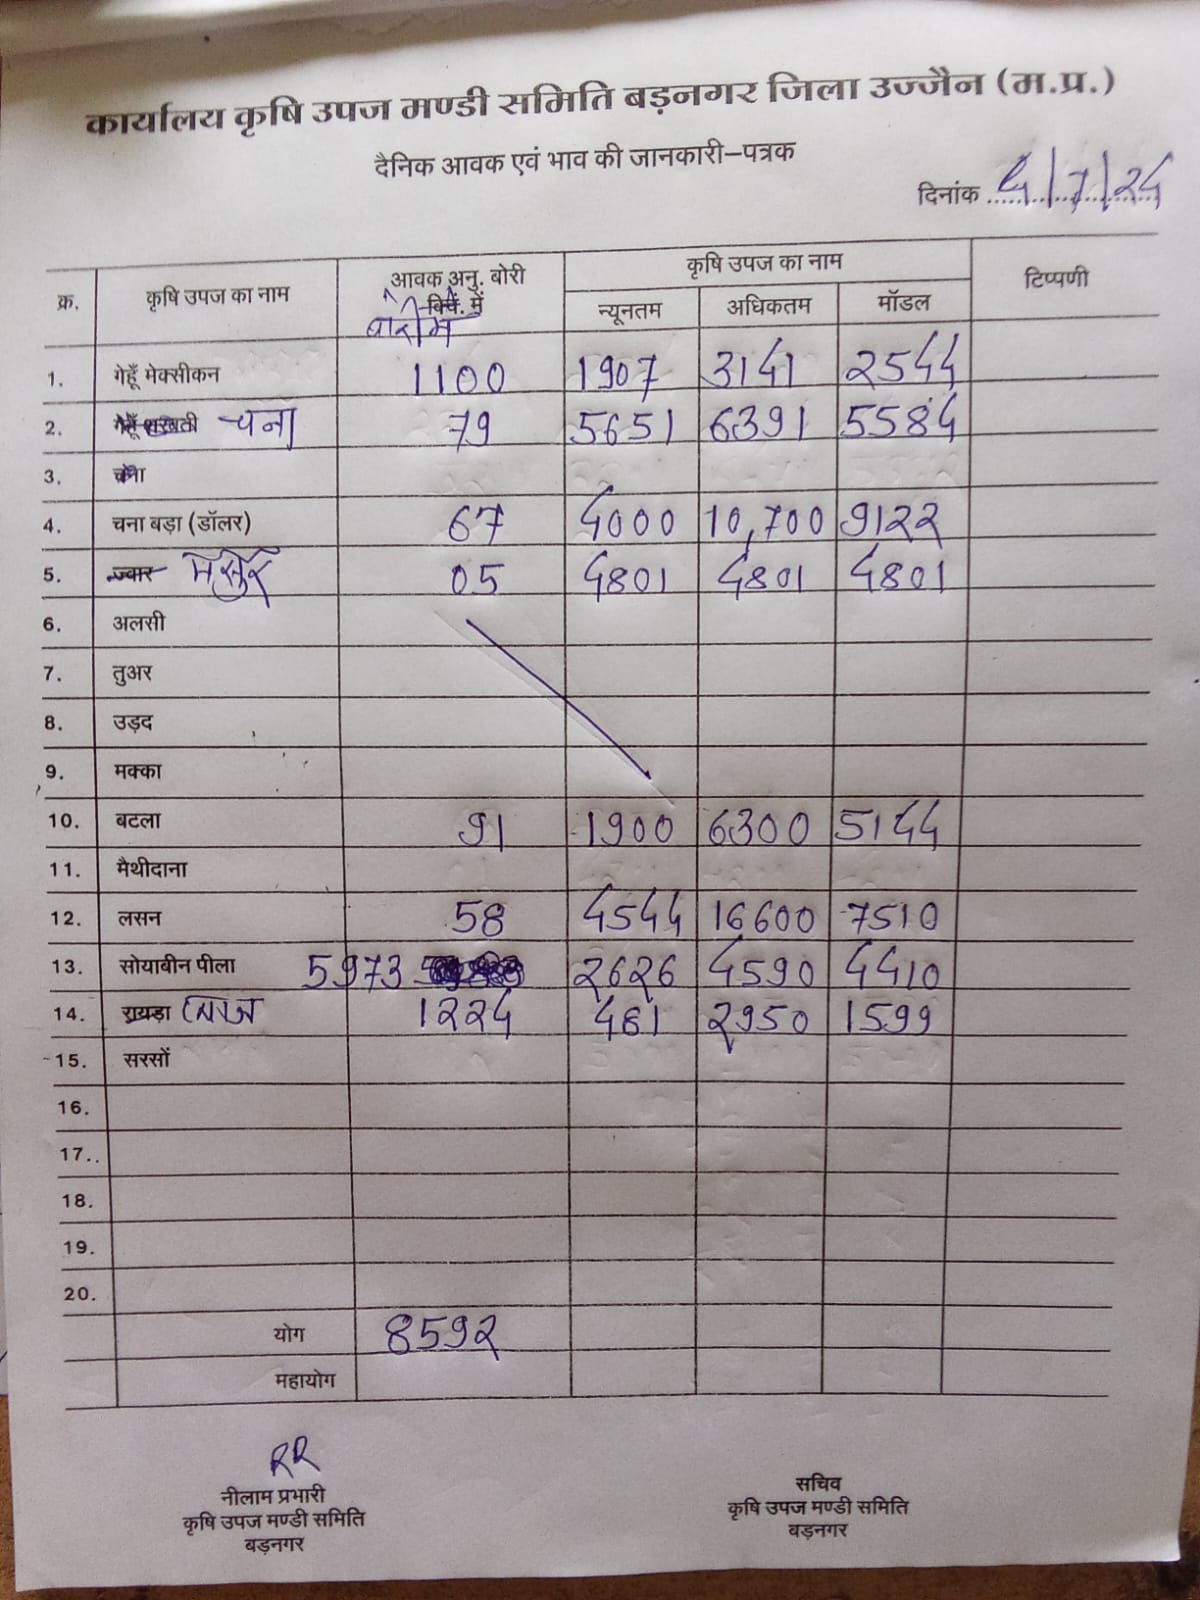 कार्यालय कृषि उपज मण्डी समिति बड़नगर जिला उज्जैन (म.प्र.)
दैनिक आवक एवं भाव की जानकारी-पत्रक
दिनांक 4/7/24
क्र. कृषि उपज का नाम आवक अनु. बोरी क्विं. में कृषि उपज का नाम टिप्पणी
बोरी में न्यूनतम अधिकतम मॉडल
1. गेहूँ मेक्सीकन 1100 1907 3141 2544
2. गेहूँ शरबती चना 79 5651 6391 5584
3. चना
4. चना बड़ा (डॉलर) 67 4000 10,700 9122
5. ज्वार मसुर 05 4801 4801 4801
6. अलसी
7. तुअर
8. उड़द
9. मक्का
10. बटला 91 1900 6300 5144
11. मैथीदाना
12. लसन 58 4544 16600 7510
13. सोयाबीन पीला 5973 2626 4590 4410
14. रायड़ा 1224 461 2950 1599
15. सरसों
16.
17..
18.
19.
20.
योग 8592
महायोग
RR
नीलाम प्रभारी
कृषि उपज मण्डी समिति
बड़नगर
सचिव
कृषि उपज मण्डी समिति
बड़नगर